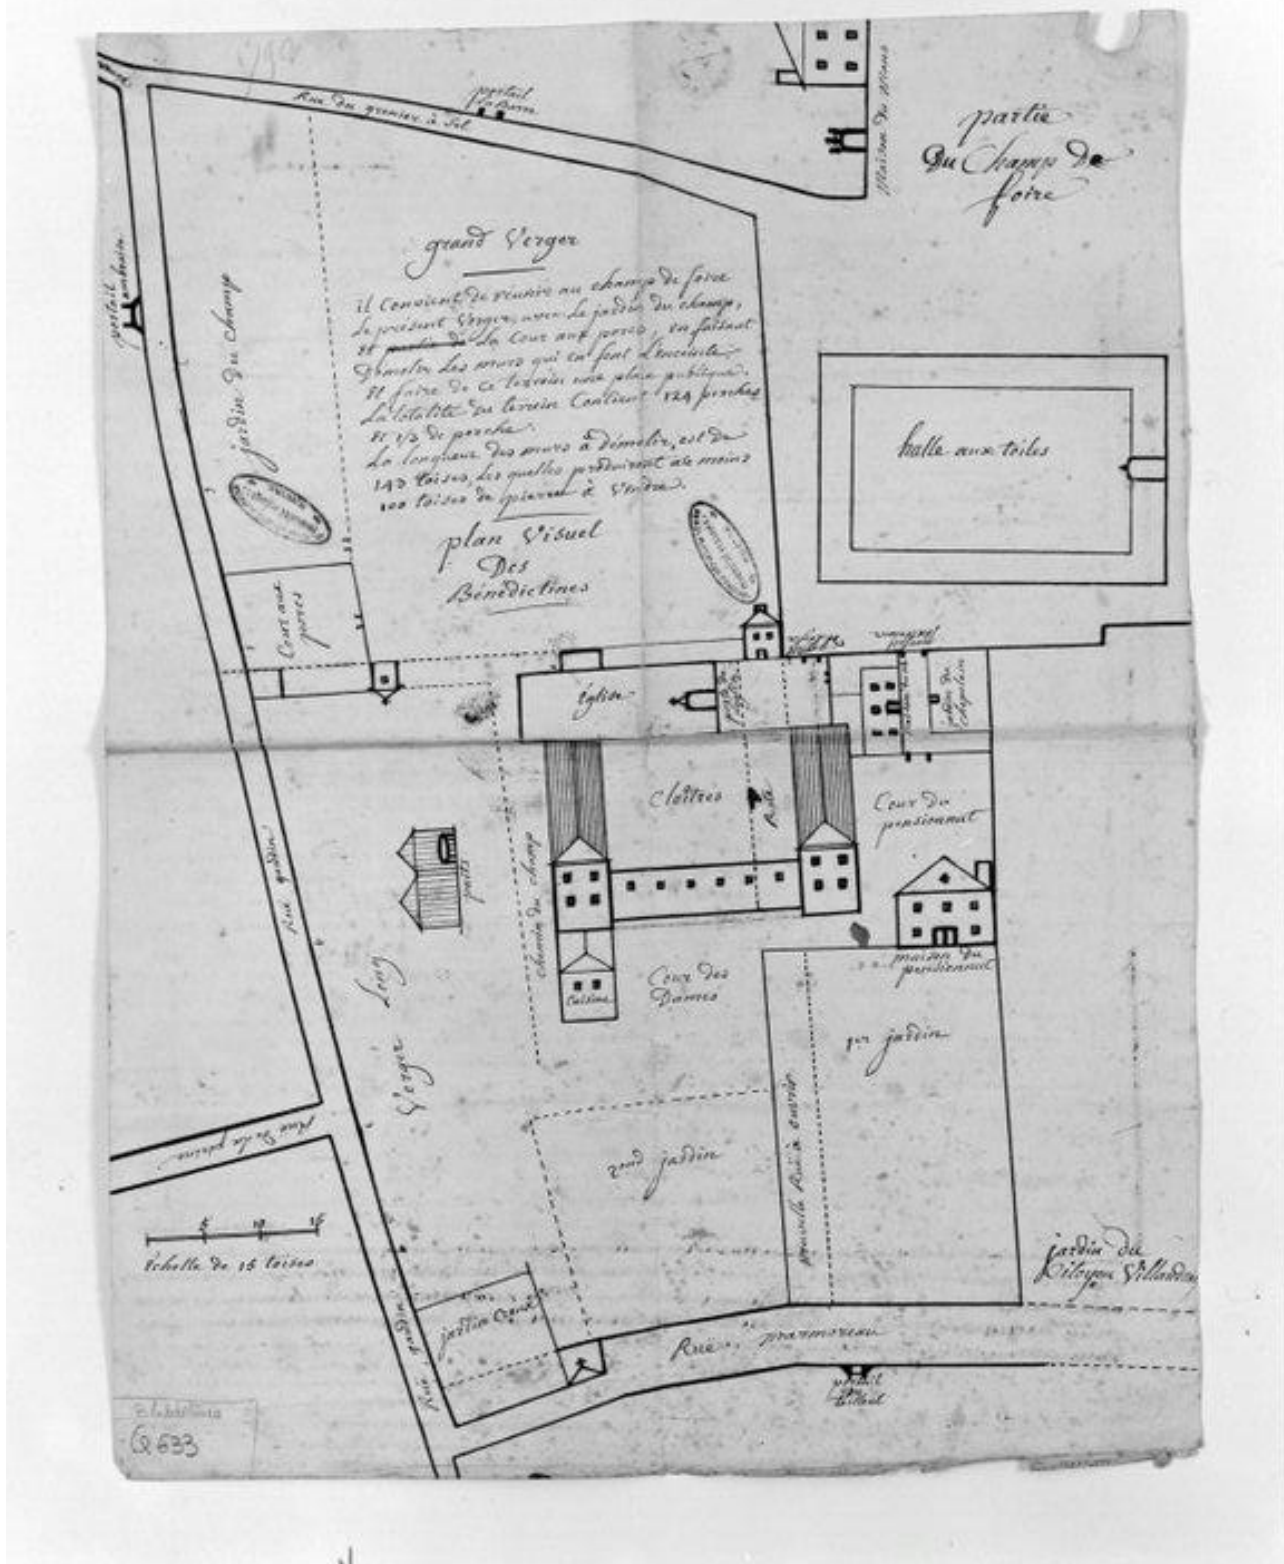 Rue du grenier à Sel
portail
Maison du Mans
partie
Du Champ De
foire
portail
jardin du champ
grand Verger
il Convient de réunir au champ de foire
Le présent Verger, avec Le jardin du champ,
et partie de La Cour aux porcs, en faisant
Démolir Les murs qui en font L'enceinte
et faire de ce terrein une place publique.
La totalité du terrein Contient 124 perches
et 1/3 de perche.
La longueur des murs à démolir, est de
143 toises, Les quelles produiront au moins
100 toises de pierre à Vendre.
plan Visuel
Des
Bénédictines
halle aux toiles
Cour aux
porcs
église
jardin du
chapelain
Cloîtres
Cour du
pensionnat
puits
chemin du champ
Rue gaudin
Verger Long
Cuisine
Cour des
Dames
maison du
pensionnat
1er jardin
2ond jardin
nouvelle Rüe à ouvrir
Rue de la
5 10 15
échelle de 15 toises
jardin du
Citoyen
jardin
Rue gaudin
Rüe marmoreau
portail
Q 633